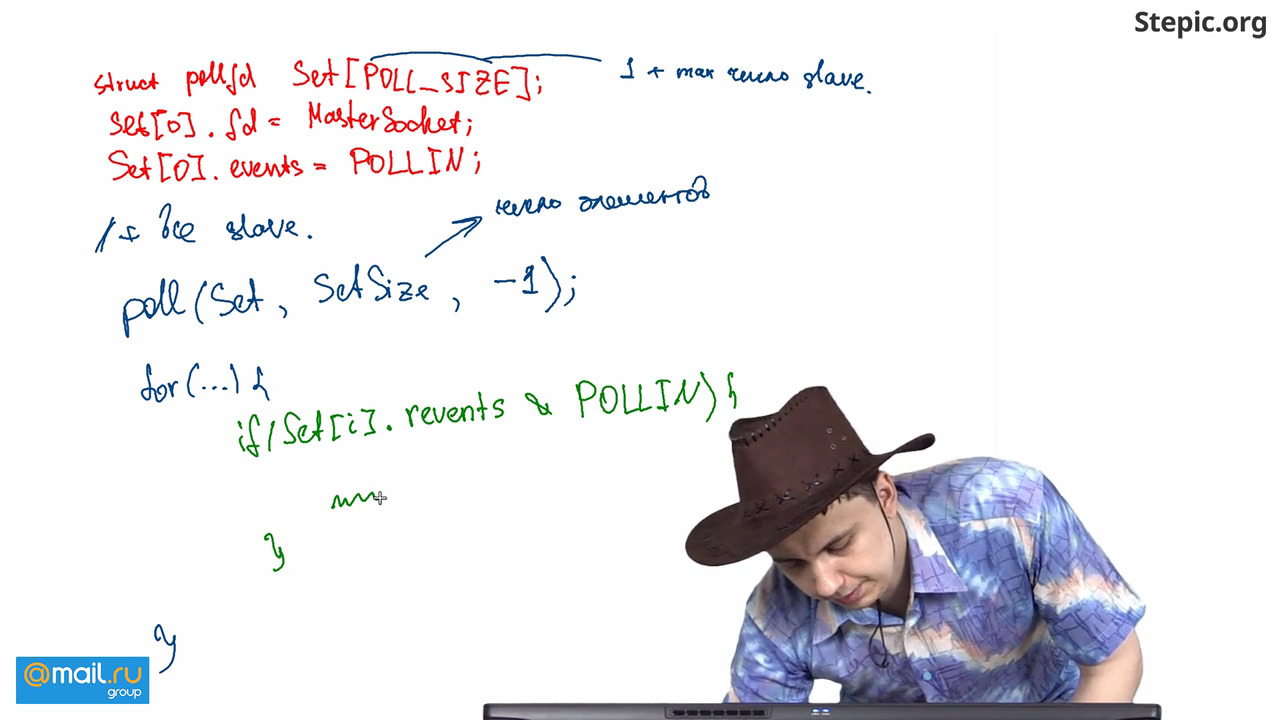 Stepic.org
struct pollfd Set[POLL_SIZE]; 1 + max число slave.
set[0].fd = MasterSocket;
Set[0].events = POLLIN;
число элементов
/+ все slave.
poll(Set, SetSize, -1);
for(...){
if(Set[i].revents & POLLIN){
}
}
@mail.ru
group